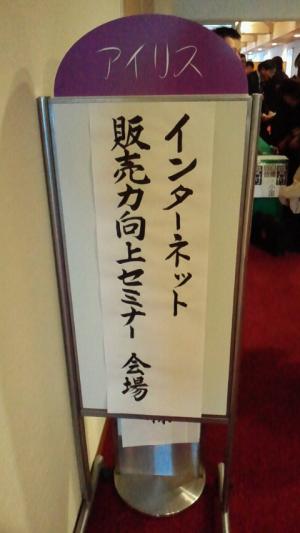 アイリス
インターネット
販売力向上セミナー 会場